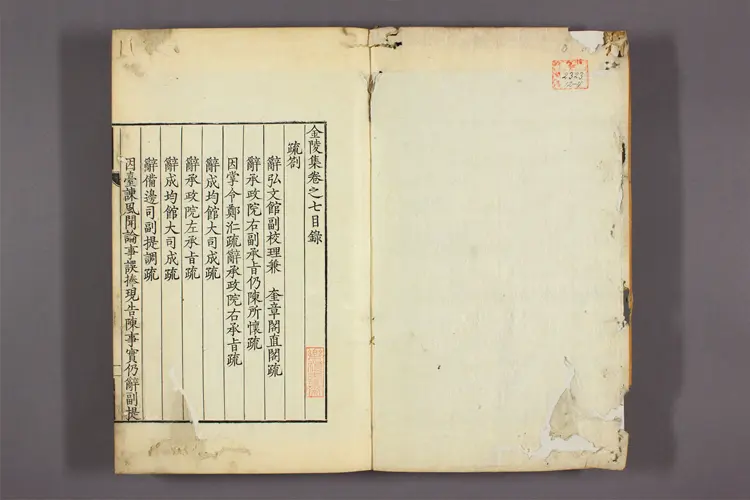 金陵集卷之七目錄
疏劄
辭弘文館副校理兼 奎章閣直閣疏
辭承政院右副承旨仍陳所懷疏
因掌令鄭汇疏辭承政院右承旨疏
辭成均館大司成疏
辭承政院左承旨疏
辭成均館大司成疏
辭備邊司副提調疏
因臺諫風聞論事誤捧現告陳事實仍辭副提
2323
12-4